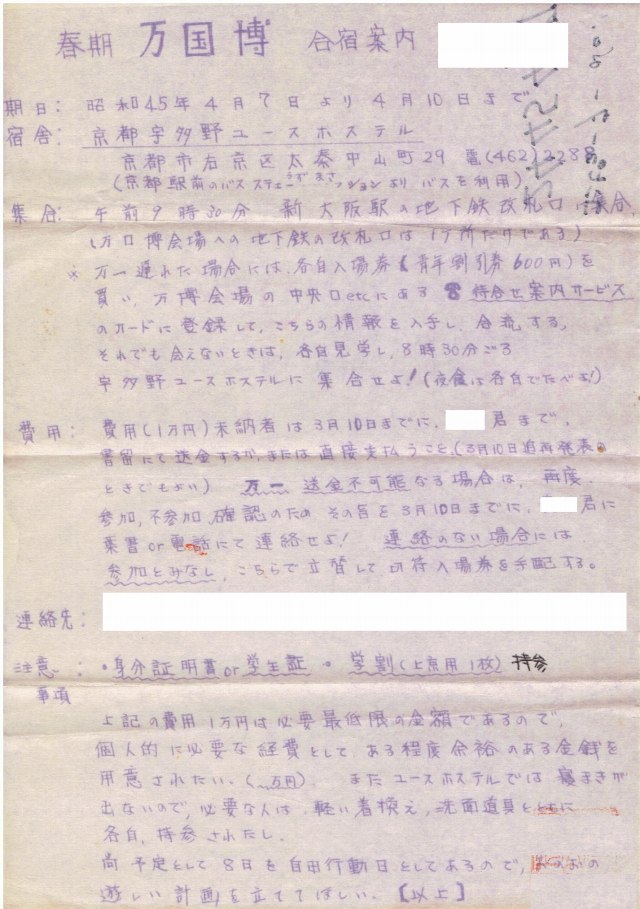 春期 万国博 合宿案内
期日: 昭和45年4月7日より4月10日まで
宿舎: 京都宇多野ユースホステル
京都市右京区太秦中山町29 電(462)2288
うずまさ
(京都駅前のバスステェーションより バスを利用)
集合: 午前9時30分 新大阪駅の地下鉄改札口に集合
(万口博会場への地下鉄の改札口は1ケ所だけである)
※ 万一遅れた場合には、各自入場券(青年割引券600円)を
買い、万博会場の中央口etcにある ☎ 待合せ案内サービス
のカードに登録して、こちらの情報を入手し、合流する。
それでも会えないときは、各自見学し、8時30分ごろ
宇多野ユースホステルに 集合せよ!(夜食は各自でたべよ!)
費用: 費用(1万円)未納者は3月10日までに、 君まで、
書留にて送金するか、または直接支払うこと。(3月10日追再発表の
ときでもよい) 万一 送金不可能なる場合は、再度
参加、不参加、確認のため その旨を3月10日までに、 君に
葉書or電話にて連絡せよ! 連絡のない場合には
参加とみなし、こちらで立替して 入場券を手配する。
連絡先:
注意: ・身分証明書or学生証 ・学割(上京用1枚) 持参
事項
上記の費用1万円は必要最低限の金額であるので、
個人的に必要な経費として ある程度余裕のある金銭を
用意されたい。( 万円) またユースホステルでは 寝まきが
出ないので、必要な人は 軽い着換え、洗面道具
各自、持参されたし。
尚 予定として 8日を自由行動日としてあるので、
遊しい計画を立ててほしい。【以上】